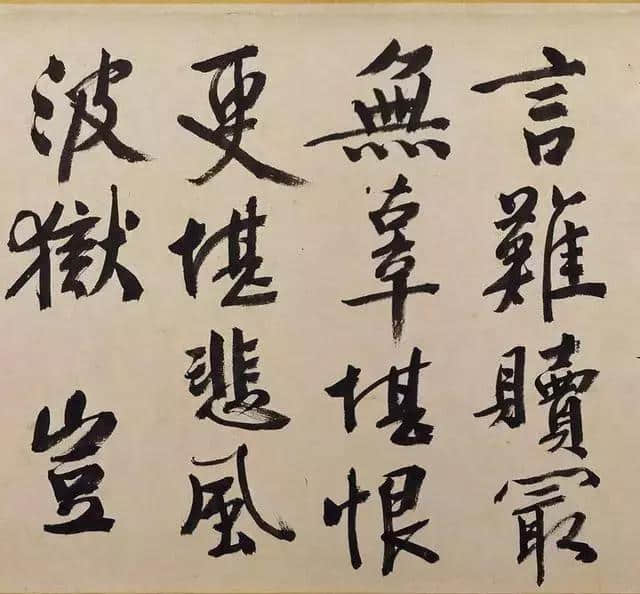 言難贖冣
無辜堪恨
更堪悲風
波獄豈